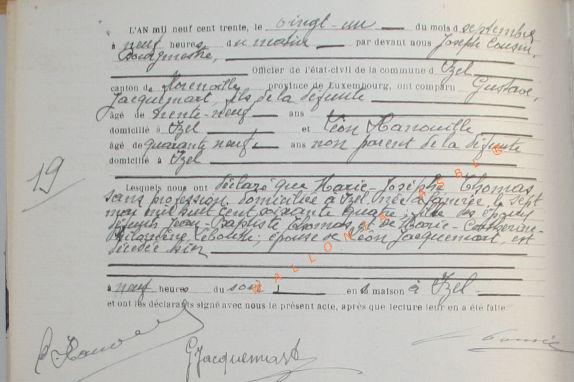 L'AN mil neuf cent trente, le vingt-un du mois d septembre
à neuf heures du matin par devant nous Joseph Cousin,
Bourgmestre,
Officier de l'état-civil de la commune d Izel
canton de Florenville province de Luxembourg, ont comparu Gustave,
Jacquemart, fils de la défunte
âgé de trente-neuf ans
domicilié à Izel et Léon Hanouille
âgé de quarante neuf ans non parent de la défunte
domicilié à Izel
19
Lesquels nous ont déclaré que Marie-Josèphe Thomas
sans profession domiciliée à Izel née à le sept
mai mil huit cent soixante quatre, fille des époux
défunts Jean-Baptiste Thomas et de Marie-Catherine-
Philomène ; épouse de Léon Jacquemart, est
décédée hier
à neuf heures du soir en sa maison à Izel
et ont les déclarants signé avec nous le présent acte, après que lecture leur en a été faite.
GJacquemart
WALLONIA ASBL ©